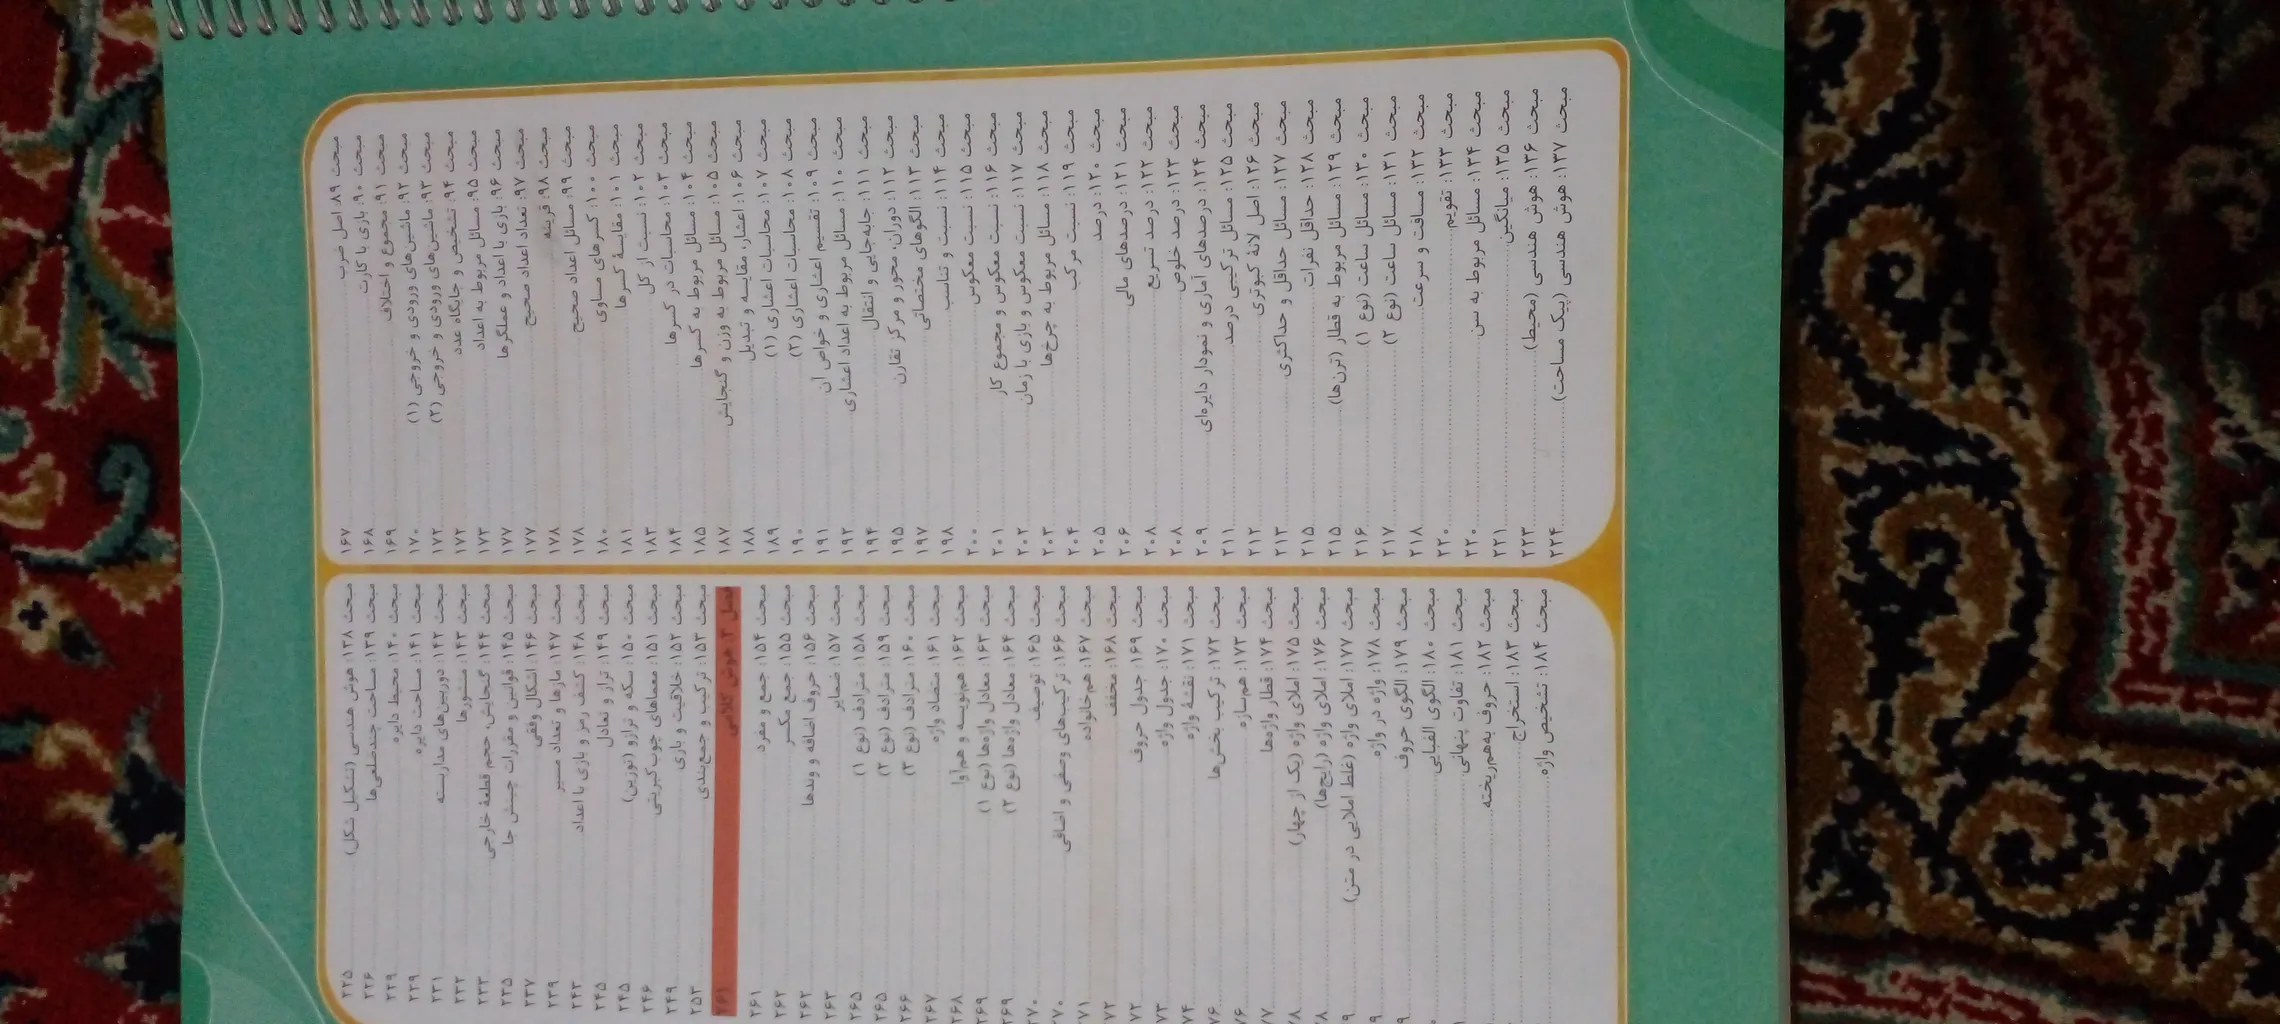 مبحث ۸۹: اصل ضرب ........ ۱۶۷
مبحث ۹۰: بازی با کارت ........ ۱۶۸
مبحث ۹۱: مجموع و اختلاف ........ ۱۶۹
مبحث ۹۲: ماشین‌های ورودی و خروجی (۱) ........ ۱۷۰
مبحث ۹۳: ماشین‌های ورودی و خروجی (۲) ........ ۱۷۲
مبحث ۹۴: تشخیص و جایگاه عدد ........ ۱۷۲
مبحث ۹۵: مسائل مربوط به اعداد ........ ۱۷۳
مبحث ۹۶: بازی با اعداد و عملگرها ........ ۱۷۷
مبحث ۹۷: تعداد اعداد صحیح ........ ۱۷۷
مبحث ۹۸: قرینه ........ ۱۷۸
مبحث ۹۹: مسائل اعداد صحیح ........ ۱۷۸
مبحث ۱۰۰: کسرهای مساوی ........ ۱۸۰
مبحث ۱۰۱: مقایسهٔ کسرها ........ ۱۸۱
مبحث ۱۰۲: نسبت از کل ........ ۱۸۳
مبحث ۱۰۳: محاسبات در کسرها ........ ۱۸۴
مبحث ۱۰۴: مسائل مربوط به کسرها ........ ۱۸۵
مبحث ۱۰۵: مسائل مربوط به وزن و گنجایش ........ ۱۸۷
مبحث ۱۰۶: اعشار، مقایسه و تبدیل ........ ۱۸۸
مبحث ۱۰۷: محاسبات اعشاری (۱) ........ ۱۸۹
مبحث ۱۰۸: محاسبات اعشاری (۲) ........ ۱۹۰
مبحث ۱۰۹: تقسیم اعشاری و خواص آن ........ ۱۹۱
مبحث ۱۱۰: مسائل مربوط به اعداد اعشاری ........ ۱۹۲
مبحث ۱۱۱: جابه‌جایی و انتقال ........ ۱۹۴
مبحث ۱۱۲: دوران، محور و مرکز تقارن ........ ۱۹۵
مبحث ۱۱۳: الگوهای مختصاتی ........ ۱۹۷
مبحث ۱۱۴: نسبت و تناسب ........ ۱۹۸
مبحث ۱۱۵: نسبت معکوس ........ ۲۰۰
مبحث ۱۱۶: نسبت معکوس و مجموع کار ........ ۲۰۱
مبحث ۱۱۷: نسبت معکوس و بازی با زمان ........ ۲۰۲
مبحث ۱۱۸: مسائل مربوط به چرخ‌ها ........ ۲۰۳
مبحث ۱۱۹: نسبت مرکب ........ ۲۰۴
مبحث ۱۲۰: درصد ........ ۲۰۵
مبحث ۱۲۱: درصدهای مالی ........ ۲۰۶
مبحث ۱۲۲: درصد تسریع ........ ۲۰۸
مبحث ۱۲۳: درصد خلوص ........ ۲۰۸
مبحث ۱۲۴: درصدهای آماری و نمودار دایره‌ای ........ ۲۰۹
مبحث ۱۲۵: مسائل ترکیبی درصد ........ ۲۱۱
مبحث ۱۲۶: اصل لانهٔ کبوتری ........ ۲۱۲
مبحث ۱۲۷: مسائل حداقل و حداکثری ........ ۲۱۳
مبحث ۱۲۸: حداقل نفرات ........ ۲۱۵
مبحث ۱۲۹: مسائل مربوط به قطار (ترن‌ها) ........ ۲۱۵
مبحث ۱۳۰: مسائل ساعت (نوع ۱) ........ ۲۱۶
مبحث ۱۳۱: مسائل ساعت (نوع ۲) ........ ۲۱۷
مبحث ۱۳۲: مسافت و سرعت ........ ۲۱۸
مبحث ۱۳۳: تقویم ........ ۲۲۰
مبحث ۱۳۴: مسائل مربوط به سن ........ ۲۲۰
مبحث ۱۳۵: میانگین ........ ۲۲۱
مبحث ۱۳۶: هوش هندسی (محیط) ........ ۲۲۳
مبحث ۱۳۷: هوش هندسی (پیک مساحت) ........ ۲۲۴
مبحث ۱۳۸: هوش هندسی (تشکیل شکل) ........ ۲۲۵
مبحث ۱۳۹: مساحت چندضلعی‌ها ........ ۲۲۶
مبحث ۱۴۰: محیط دایره ........ ۲۲۹
مبحث ۱۴۱: مساحت دایره ........ ۲۲۹
مبحث ۱۴۲: دوربین‌های مداربسته ........ ۲۳۱
مبحث ۱۴۳: منشورها ........ ۲۳۲
مبحث ۱۴۴: گنجایش، حجم قطعهٔ خارجی ........ ۲۳۳
مبحث ۱۴۵: قوانین و مقررات چینش جا ........ ۲۳۵
مبحث ۱۴۶: اشکال وفقی ........ ۲۳۷
مبحث ۱۴۷: مازها و تعداد مسیر ........ ۲۳۹
مبحث ۱۴۸: کشف رمز و بازی با اعداد ........ ۲۴۳
مبحث ۱۴۹: تراز و تعادل ........ ۲۴۵
مبحث ۱۵۰: سکه و ترازو (توزین) ........ ۲۴۵
مبحث ۱۵۱: معماهای چوب‌کبریتی ........ ۲۴۶
مبحث ۱۵۲: خلاقیت و بازی ........ ۲۴۹
مبحث ۱۵۳: ترکیب و جمع‌بندی ........ ۲۵۳
فصل ۲: هوش کلامی ۲۶۱
مبحث ۱۵۴: جمع و مفرد ........ ۲۶۱
مبحث ۱۵۵: جمع مکسر ........ ۲۶۲
مبحث ۱۵۶: حروف اضافه و وندها ........ ۲۶۲
مبحث ۱۵۷: ضمایر ........ ۲۶۳
مبحث ۱۵۸: مترادف (نوع ۱) ........ ۲۶۵
مبحث ۱۵۹: مترادف (نوع ۲) ........ ۲۶۵
مبحث ۱۶۰: مترادف (نوع ۳) ........ ۲۶۶
مبحث ۱۶۱: متضاد واژه ........ ۲۶۷
مبحث ۱۶۲: هم‌نویسه و هم‌آوا ........ ۲۶۸
مبحث ۱۶۳: معادل واژه‌ها (نوع ۱) ........ ۲۶۹
مبحث ۱۶۴: معادل واژه‌ها (نوع ۲) ........ ۲۶۹
مبحث ۱۶۵: توصیف ........ ۲۷۰
مبحث ۱۶۶: ترکیب‌های وصفی و اضافی ........ ۲۷۰
مبحث ۱۶۷: هم‌خانواده ........ ۷۱
مبحث ۱۶۸: مخفف ........ ۷۲
مبحث ۱۶۹: جدول حروف ........ ۷۲
مبحث ۱۷۰: جدول واژه ........ ۷۳
مبحث ۱۷۱: نقشهٔ واژه ........ ۷۴
مبحث ۱۷۲: ترکیب بخش‌ها ........ ۷۶
مبحث ۱۷۳: هم‌سازه ........ ۷۶
مبحث ۱۷۴: قطار واژه‌ها ........ ۷۷
مبحث ۱۷۵: املای واژه (یک از چهار) ........ ۷۸
مبحث ۱۷۶: املای واژه (رایج‌ها) ........ ۸
مبحث ۱۷۷: املای واژه (غلط املایی در متن) ........ ۹
مبحث ۱۷۸: واژه در واژه ........ ۹
مبحث ۱۷۹: الگوی حروف ........ ۹
مبحث ۱۸۰: الگوی الفبایی
مبحث ۱۸۱: تفاوت پنهانی
مبحث ۱۸۲: حروف به‌هم‌ریخته
مبحث ۱۸۳: استخراج
مبحث ۱۸۴: تشخیص واژه